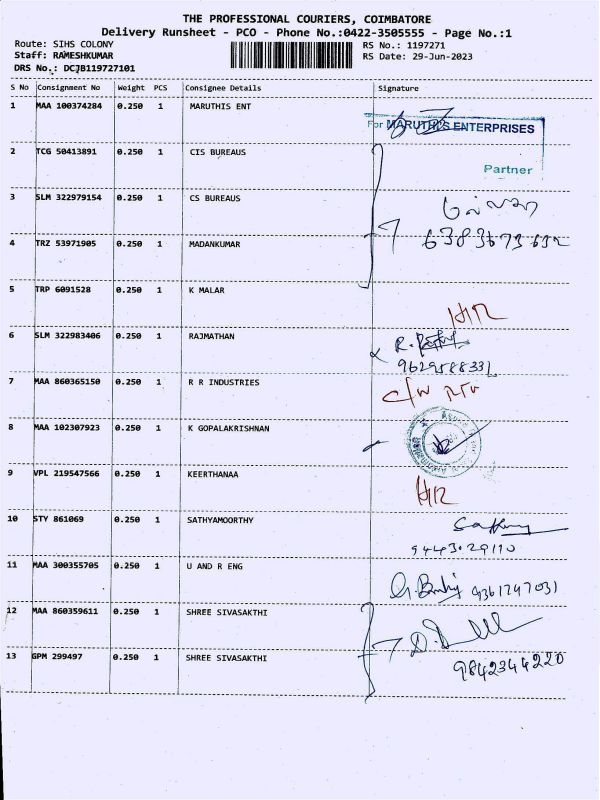 THE PROFESSIONAL COURIERS, COIMBATORE
Delivery Runsheet - PCO - Phone No.:0422-3505555 - Page No.:1
Route: SIHS COLONY RS No.: 1197271
Staff: RAMESHKUMAR RS Date: 29-Jun-2023
DRS No.: DCJB119727101
S No Consignment No Weight PCS Consignee Details Signature
1 MAA 100374284 0.250 1 MARUTHIS ENT
For MARUTHI'S ENTERPRISES
2 TCG 50413891 0.250 1 CIS BUREAUS
Partner
3 SLM 322979154 0.250 1 CS BUREAUS
4 TRZ 53971905 0.250 1 MADANKUMAR
5 TRP 6091528 0.250 1 K MALAR
H/R
6 SLM 322983406 0.250 1 RAJMATHAN
9629588331
7 MAA 860365150 0.250 1 R R INDUSTRIES
8 MAA 102307923 0.250 1 K GOPALAKRISHNAN
9 VPL 219547566 0.250 1 KEERTHANAA
H/R
10 STY 861069 0.250 1 SATHYAMOORTHY
9443029110
11 MAA 300355705 0.250 1 U AND R ENG
9361747031
12 MAA 860359611 0.250 1 SHREE SIVASAKTHI
13 GPM 299497 0.250 1 SHREE SIVASAKTHI
9842344220